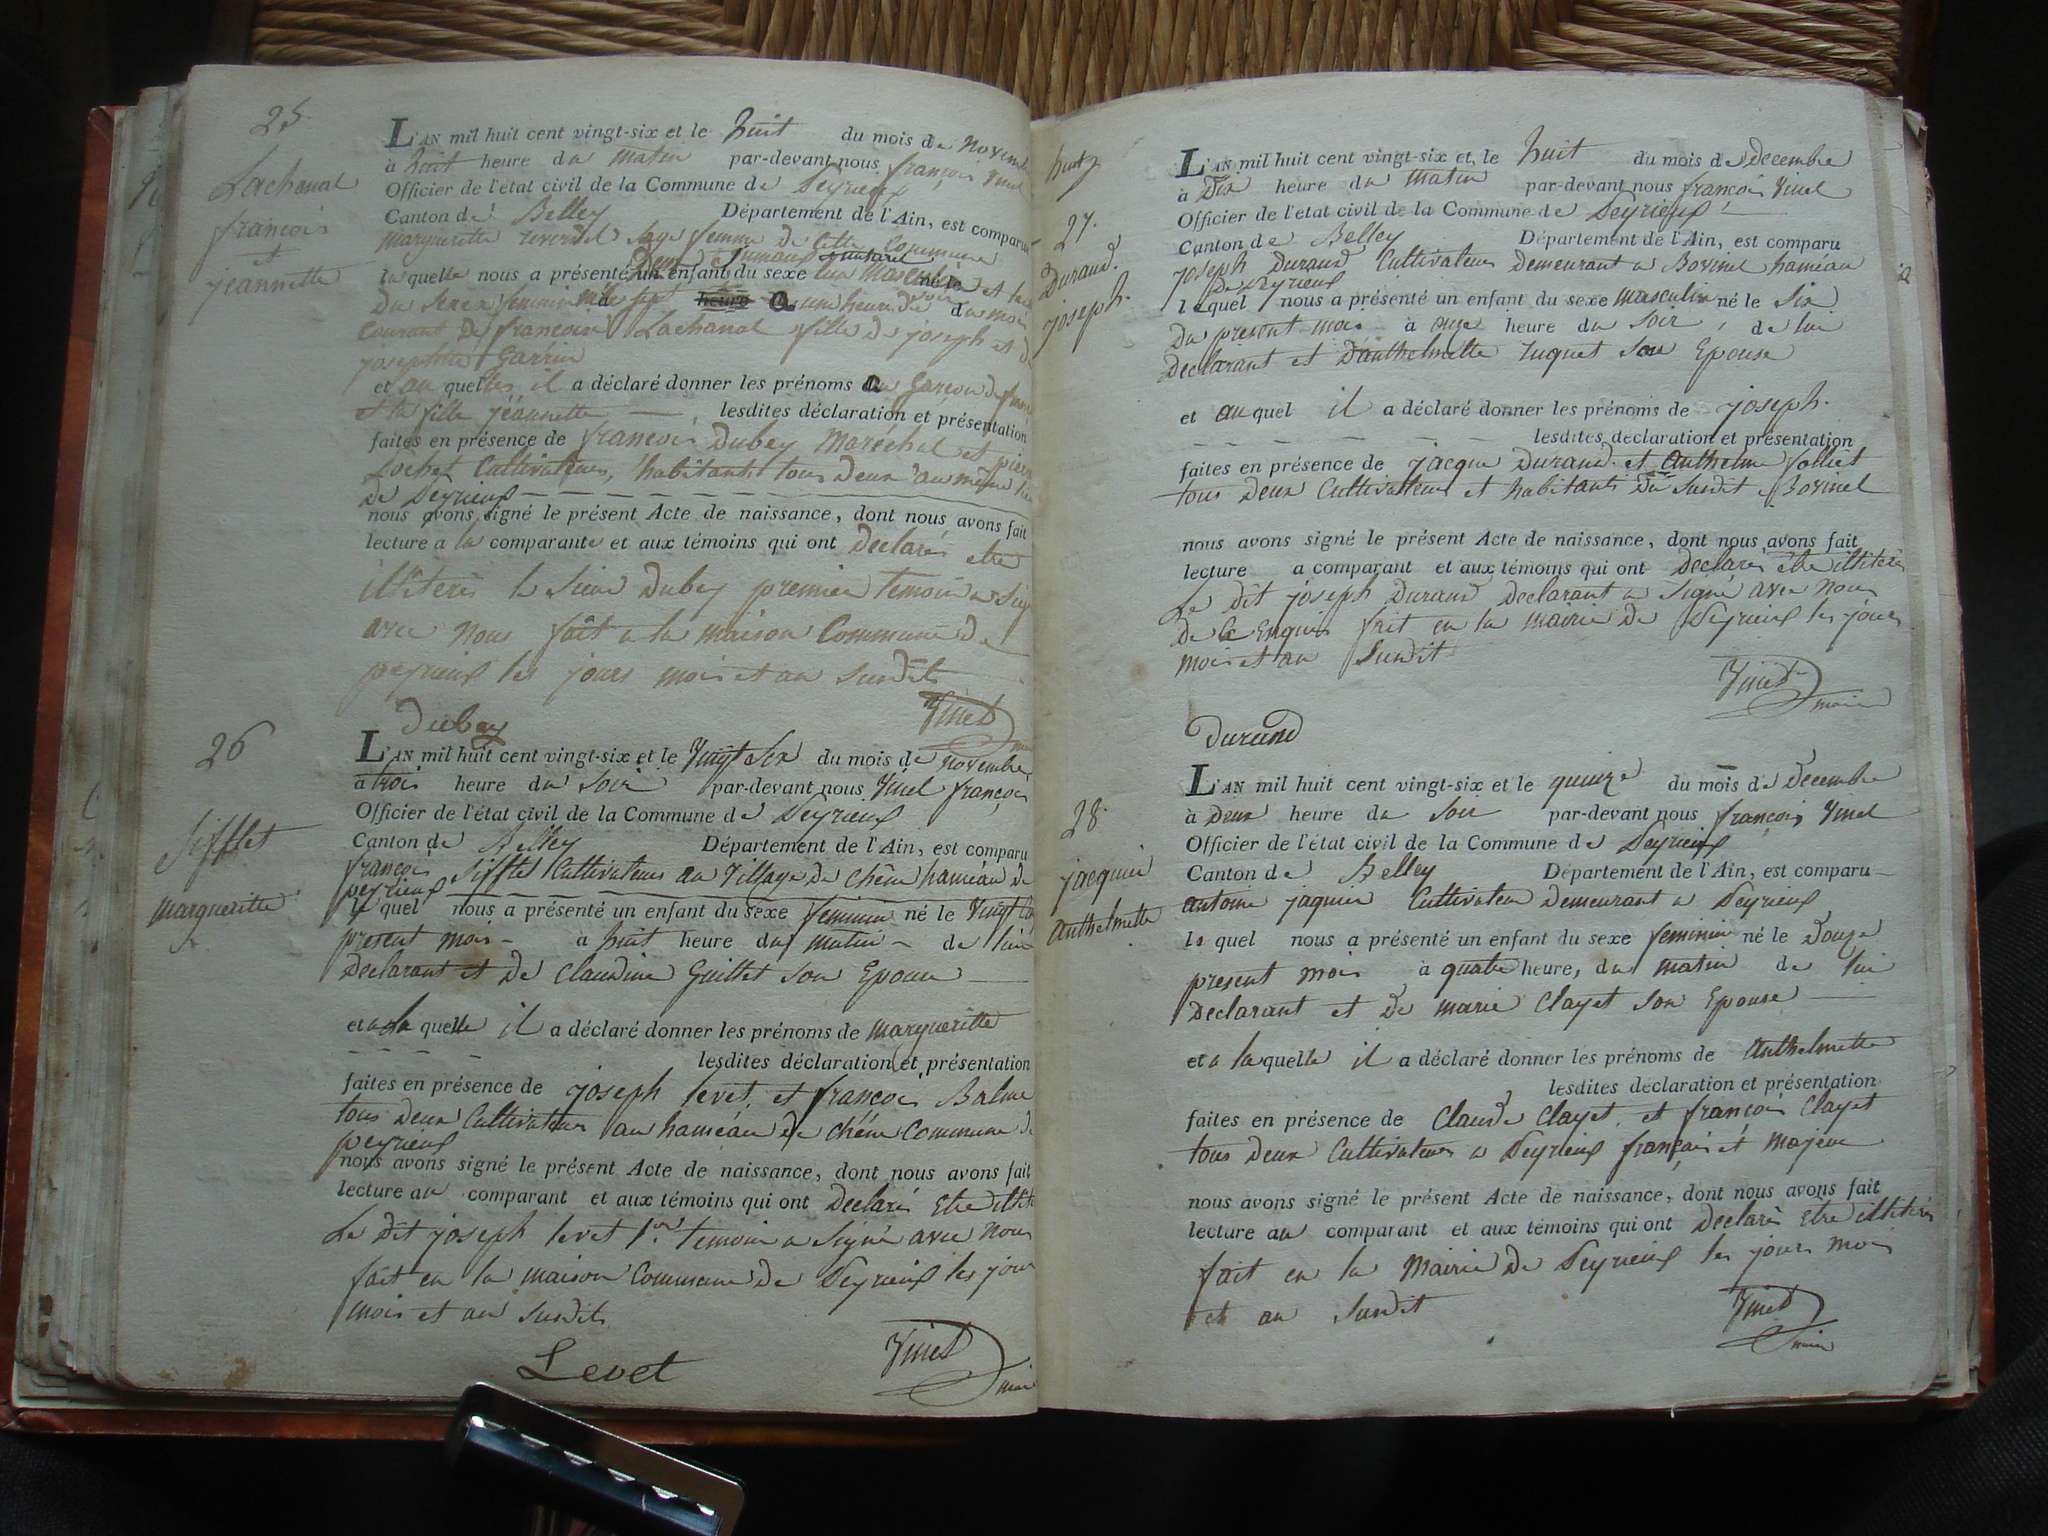 25.
Lachanal
françois
et
jeannette
L'AN mil huit cent vingt-six et le huit du mois de Novembre
à huit heure du matin par-devant nous françois Vinel
Officier de l'état civil de la Commune de Peyrieux
Canton de Belley Département de l'Ain, est comparu
Marguerette reverdel sage femme de cette Commune
Deux jumaux
laquelle nous a présenté un enfant du sexe un Masculin né le et la
du sexe feminin sept heure a une heure du mois
courant de francoise Lachanal fille de joseph et de
josephte Garrin
et au quelles il a déclaré donner les prénoms au Garçon de
et la fille jéannette — lesdites déclaration et présentation
faites en présence de francois Dubey Maréchal et pierre
Lochet Cultivateurs, habitants tous deux au même lieu
de Peyrieux
nous avons signé le présent Acte de naissance, dont nous avons fait
lecture a la comparante et aux témoins qui ont Declarés etre
illiterés le Sieur Dubey premier temoin a Signé
avec Nous fait a la maison Commune de
peyrieux les jours mois et an Susdits
Dubey Vinel
26
Sifflet
margueritte
L'AN mil huit cent vingt-six et le Vingt Six du mois de novembre
à trois heure du Soir par-devant nous Vinel françois
Officier de l'état civil de la Commune de Peyrieux
Canton de Belley Département de l'Ain, est comparu
françois Sifflet Cultivateur au Village de Chêne haméau de
peyrieux
le quel nous a présenté un enfant du sexe feminin né le Vingt
présent mois - à huit heure du matin - de lui
Declarant et de Claudine Guillet son Epouse
et a la quelle il a déclaré donner les prénoms de margueritte
lesdites déclaration et présentation
faites en présence de joseph levet, et francois Balme
tous deux Cultivateurs au haméau de chêne Commune de
peyrieux
nous avons signé le présent Acte de naissance, dont nous avons fait
lecture au comparant et aux témoins qui ont Declarés Etre
Le Dit joseph levet 1er temoin a Signé avec nous
fait en la maison Commune de Peyrieux les jour
mois et an susdits
Levet Vinel maire
27.
Durand.
joseph.
L'AN mil huit cent vingt-six et le huit du mois de decembre
à Dix heure du matin par-devant nous françois Vinel
Officier de l'etat civil de la Commune de Peyrieux
Canton de Belley Département de l'Ain, est comparu
joseph Durand Cultivateur Demeurant a Bovinel haméau
de Peyrieux
lequel nous a présenté un enfant du sexe masculin né le Six
du present mois à onze heure du Soir, de lui
declarant et D'anthelmette Luquet Son Epouse
et au quel il a déclaré donner les prénoms de joseph.
lesdites déclaration et présentation
faites en présence de jacque Durand et Anthelme folliet
tous deux Cultivateurs et habitants du Susdit Bovinel
nous avons signé le présent Acte de naissance, dont nous avons fait
lecture a comparant et aux témoins qui ont Declarés être illiterés
Le Dit joseph Durand Declarant a Signé avec nous
de ce Enquis fait en la mairie de Peyrieux les jours
mois et an Susdit
Vinel maire
Durand
28.
jacquin
Anthelmette
L'AN mil huit cent vingt-six et le quinze du mois de Decembre
à Deux heure du Soir par-devant nous françois Vinel
Officier de l'état civil de la Commune de Peyrieux
Canton de Belley Département de l'Ain, est comparu
antoine jaquin Cultivateur Demeurant a Peyrieux
le quel nous a présenté un enfant du sexe feminin né le Douze
present mois à quatre heure, du matin de lui
Declarant et de marie Clayet son Epouse
et a la quelle il a déclaré donner les prénoms de Anthelmette
lesdites déclaration et présentation
faites en présence de Claude Clayet, et françois Clayet
tous Deux Cultivateurs a Peyrieux français et majeur
nous avons signé le présent Acte de naissance, dont nous avons fait
lecture au comparant et aux témoins qui ont Declarés Etre illiterés
fait en la Mairie de Peyrieux les jours mois
et an Susdit
Vinel maire